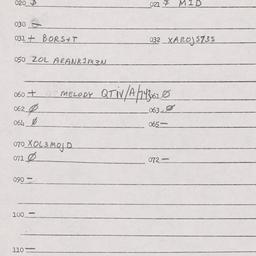 020 $ 021 $ MID
030 -
031 + BORS+T 032 XAROJS73S
050 ZOL ARANKIMZN
060 + MELODY QTIV/A/743 061 Ø
062 Ø 063 - Ø
064 Ø 065 -
070 XOLSMOJD
071 Ø 072 -
090 -
100 -
110 -